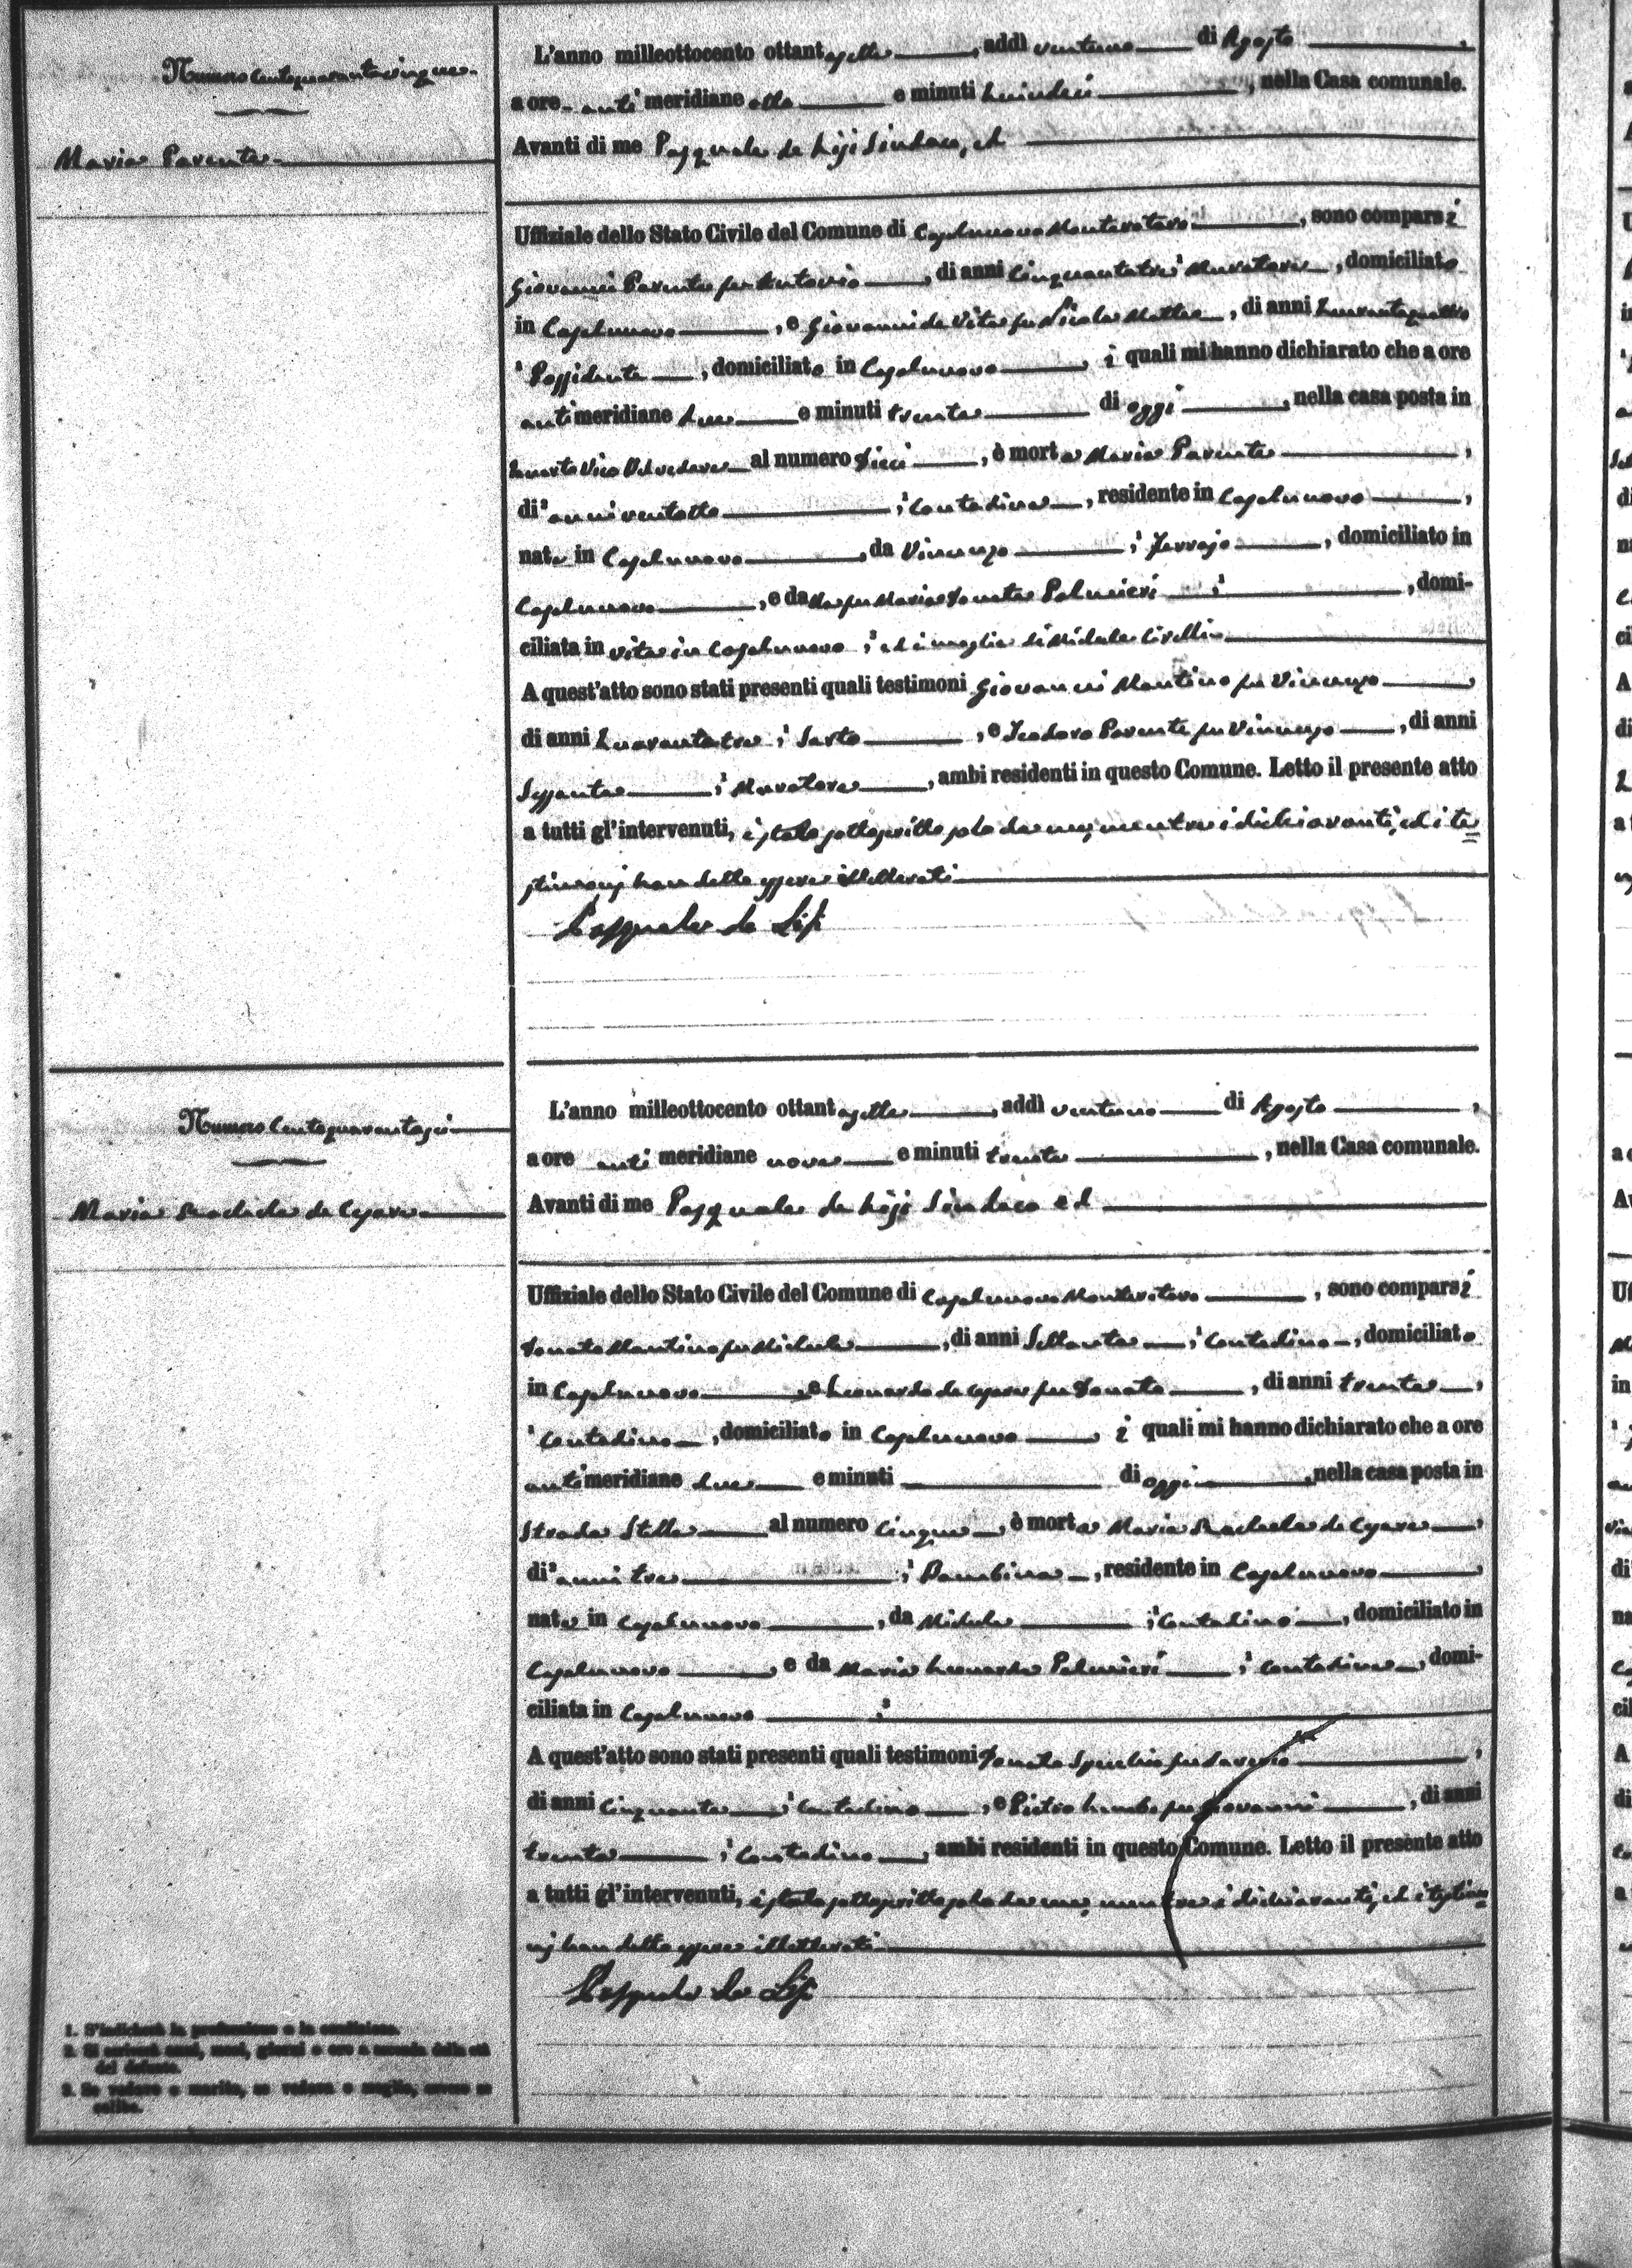 Numero centoquarantacinque
Maria Parente
L'anno milleottocento ottantasette, addì ventuno di Agosto,
a ore anti meridiane otto e minuti quindici, nella Casa comunale.
Avanti di me Pasquale de Lisi Sindaco, ed
Uffiziale dello Stato Civile del Comune di Casalnuovo Monterotaro, sono comparsi
Giovanni Parente fu Antonio, di anni cinquantatrè Muratore, domiciliato
in Casalnuovo, e Giovanni de Vita fu Nicola Matteo, di anni quarantaquattro
Possidente, domiciliato in Casalnuovo, i quali mi hanno dichiarato che a ore
antimeridiane due e minuti trenta di oggi, nella casa posta in
quarto Vico Belvedere al numero dieci, è morta Maria Parente,
di² anni ventotto, contadina, residente in Casalnuovo,
nata in Casalnuovo, da Vincenzo, domiciliato in
Casalnuovo, e da fu Maria Donata Palmieri, domi-
ciliata in vita in Casalnuovo ed è moglie di Michele
A quest'atto sono stati presenti quali testimoni Giovanni Mantino fu Vincenzo
di anni quarantatre, Sarto, e Teodoro Parente fu Vincenzo, di anni
Sessanta, Muratore, ambi residenti in questo Comune. Letto il presente atto
a tutti gl'intervenuti, è stato sottoscritto solo da me, mentre i dichiaranti, ed i te=
stimonj han detto essere illetterati
Pasquale de Lisi
Numero centoquarantasei
Maria Rachela de Cesare
L'anno milleottocento ottantasette, addì ventuno di Agosto,
a ore anti meridiane nove e minuti trenta, nella Casa comunale.
Avanti di me Pasquale de Lisi Sindaco ed
Uffiziale dello Stato Civile del Comune di Casalnuovo Monterotaro, sono comparsi
Donato Mantino fu Michele, di anni Settanta, contadino, domiciliato
in Casalnuovo, e Leonardo de Cesare fu Donato, di anni trenta,
contadino, domiciliato in Casalnuovo i quali mi hanno dichiarato che a ore
antimeridiane due e minuti di oggi, nella casa posta in
Strada Stella al numero cinque, è morta Maria Rachela de Cesare
di² anni tre, Bambina, residente in Casalnuovo
nata in Casalnuovo, da Michele, contadino, domiciliato in
Casalnuovo, e da Maria Leonarda Palmieri, contadina, domi-
ciliata in Casalnuovo
A quest'atto sono stati presenti quali testimoni Donato Specchio fu Saverio,
di anni cinquanta, contadino, e Pietro fu Giovanni, di anni
trenta, contadino, ambi residenti in questo Comune. Letto il presente atto
a tutti gl'intervenuti, è stato sottoscritto solo da me, mentre i dichiaranti, ed i testimo=
nj han detto essere illetterati
Pasquale de Lisi
1. S'indicherà la professione o la condizione.
2. Si scriverà anni, mesi, giorni o ore a seconda della età
del defunto.
3. Se vedovo o marito, se vedova o moglie, ovvero se
celibe.